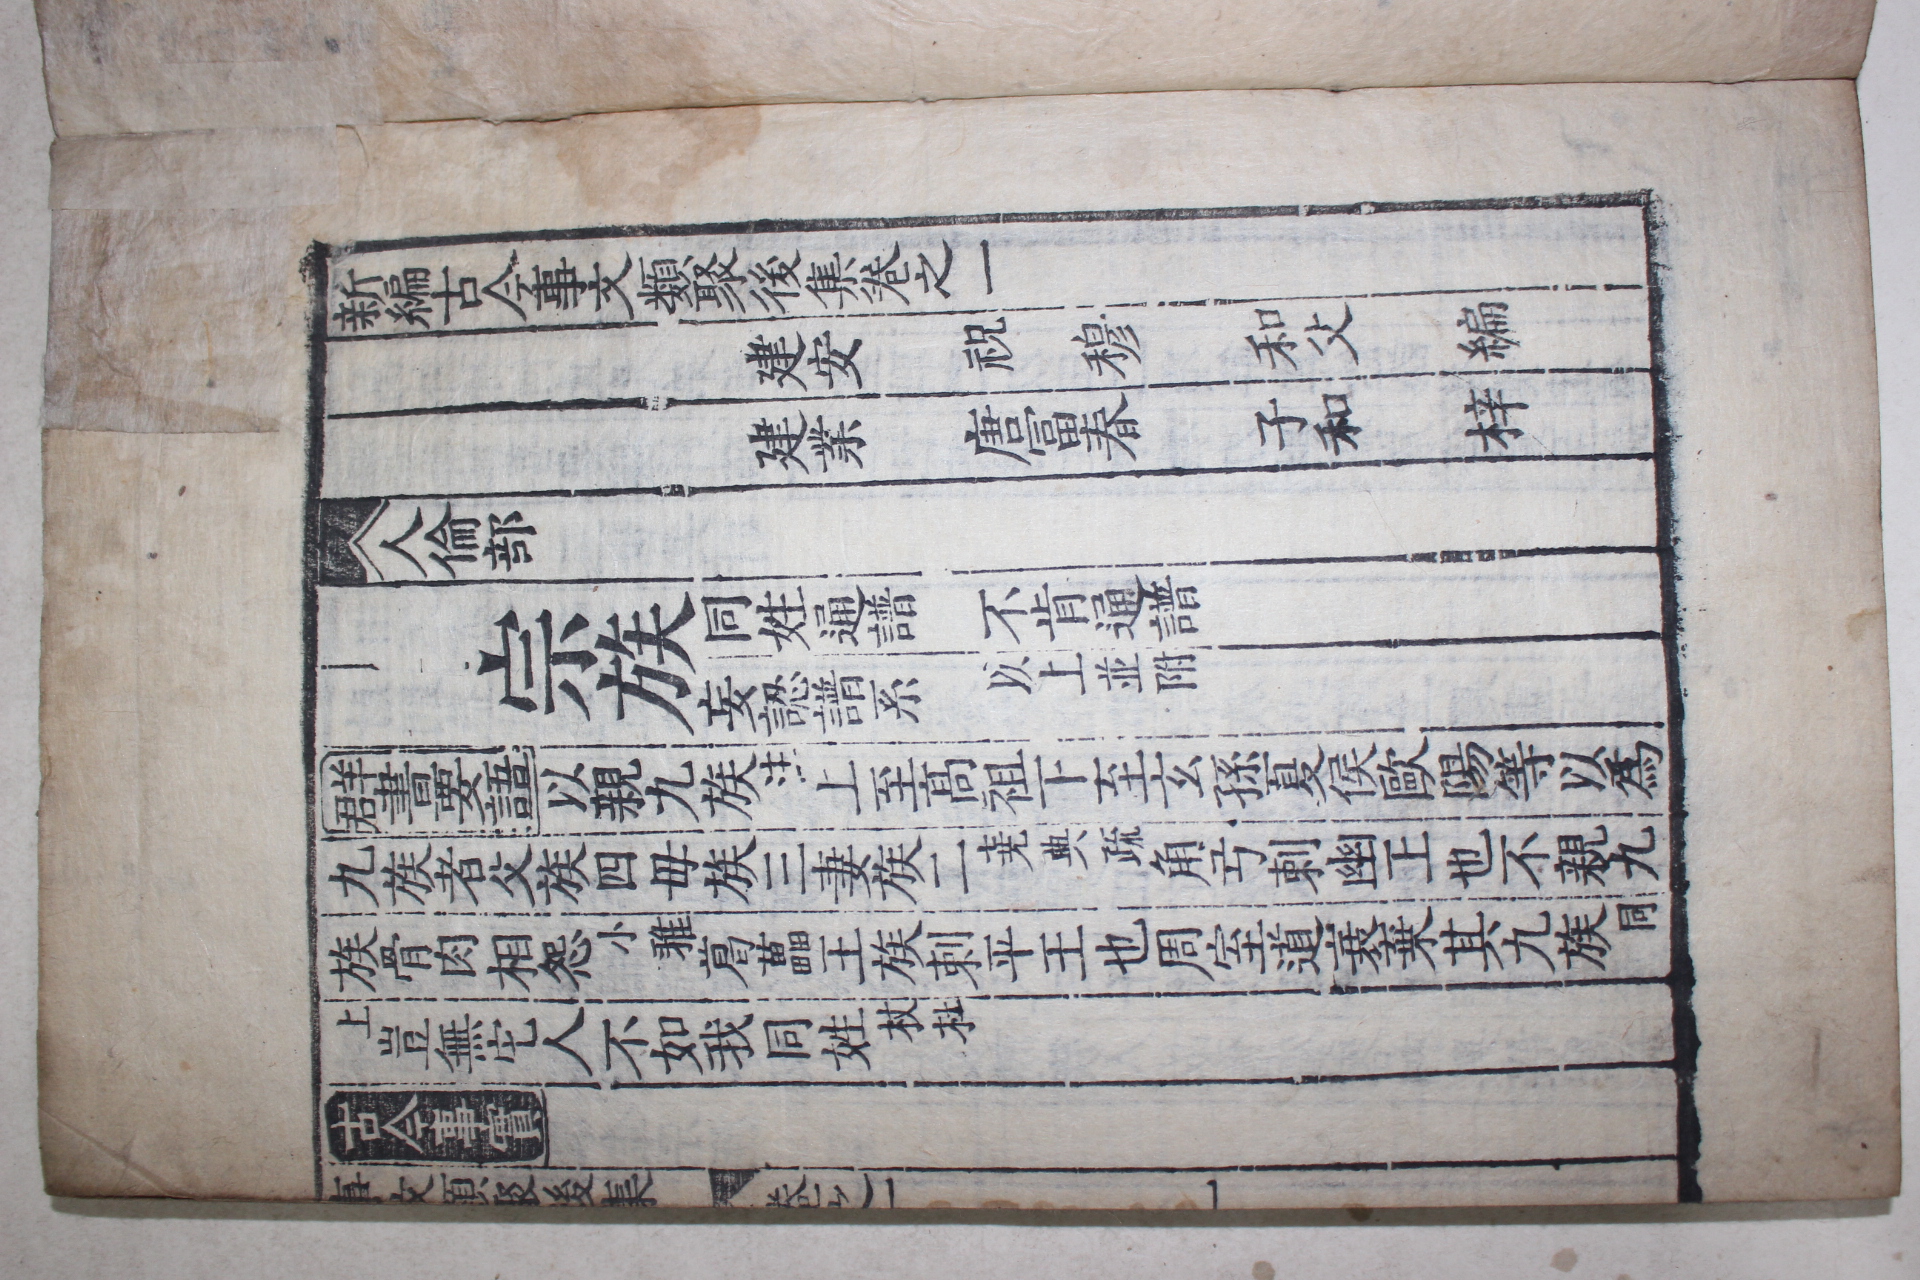 新編古今事文類聚後集卷之一
建安 祝 穆 和父 編
建業 唐富春 子和 梓
人倫部
宗族 同姓通譜 不肯通譜
妄認譜系 以上並附
群書要語 以親九族註上至高祖下至玄孫夏侯歐陽等以爲
九族者父族四母族三妻族二堯典疏角弓刺幽王也不親九
族骨肉相怨小雅葛藟王族刺平王也周室道衰棄其九族同
上豈無它人不如我同姓杕杜
古今事實
事文類聚後集 卷之一 一